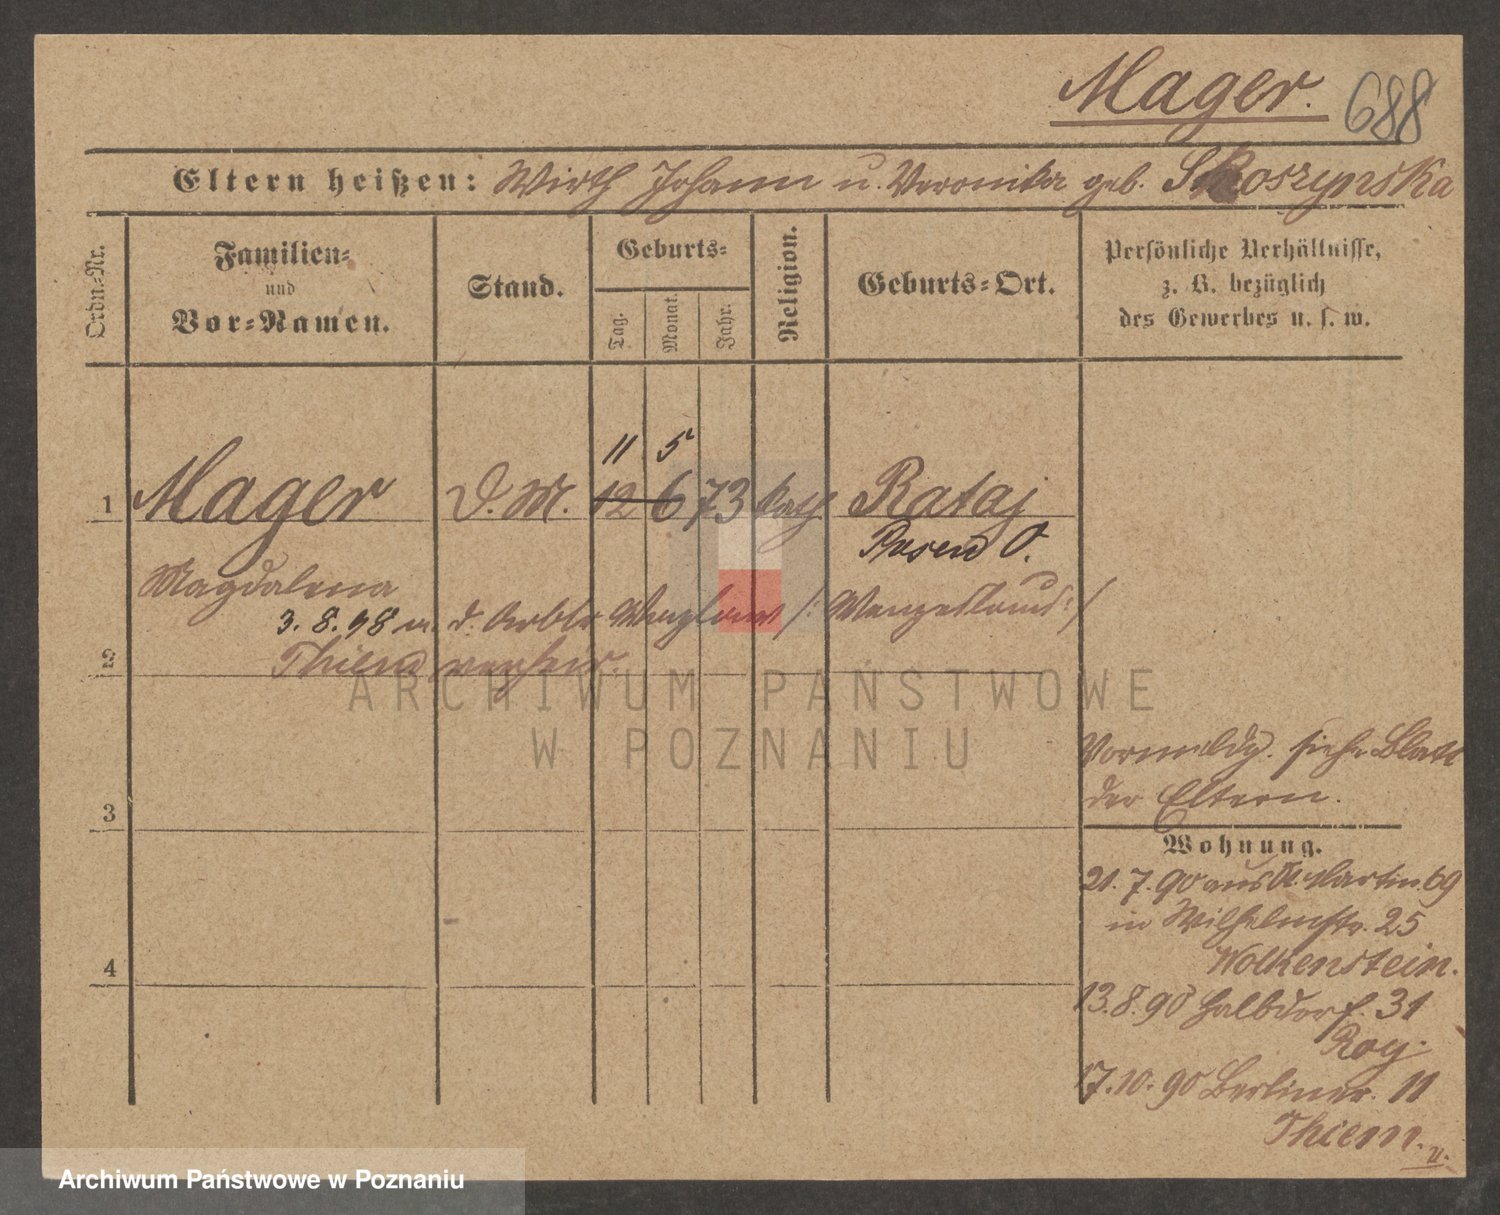 Mager. 688
Eltern heißen: Wirth Johann u. Veronika geb. Skoszynska
Ordn.-Nr.
Familien-
und
Vor-Namen.
Stand.
Geburts-
Tag.
Monat.
Jahr.
Religion.
Geburts-Ort.
Persönliche Verhältnisse,
z. B. bezüglich
des Gewerbes u. s. w.
11 5
1 Mager D. M. 12 6 73 kath Rataj
Posen O.
Magdalena
3. 8. 98 m. d. Arbtr
2
Thiem verheir.
ARCHIWUM PAŃSTWOWE
W POZNANIU
Vormeldg. siehe Blatt
der Eltern.
3
Wohnung.
21. 7. 90 aus St. Martin 69
in Wilhelmstr. 25
Wolkenstein.
4
13. 8. 90 Halbdorf. 31
Roy.
17. 10. 90 Berliner. 11
Thiem.
Archiwum Państwowe w Poznaniu